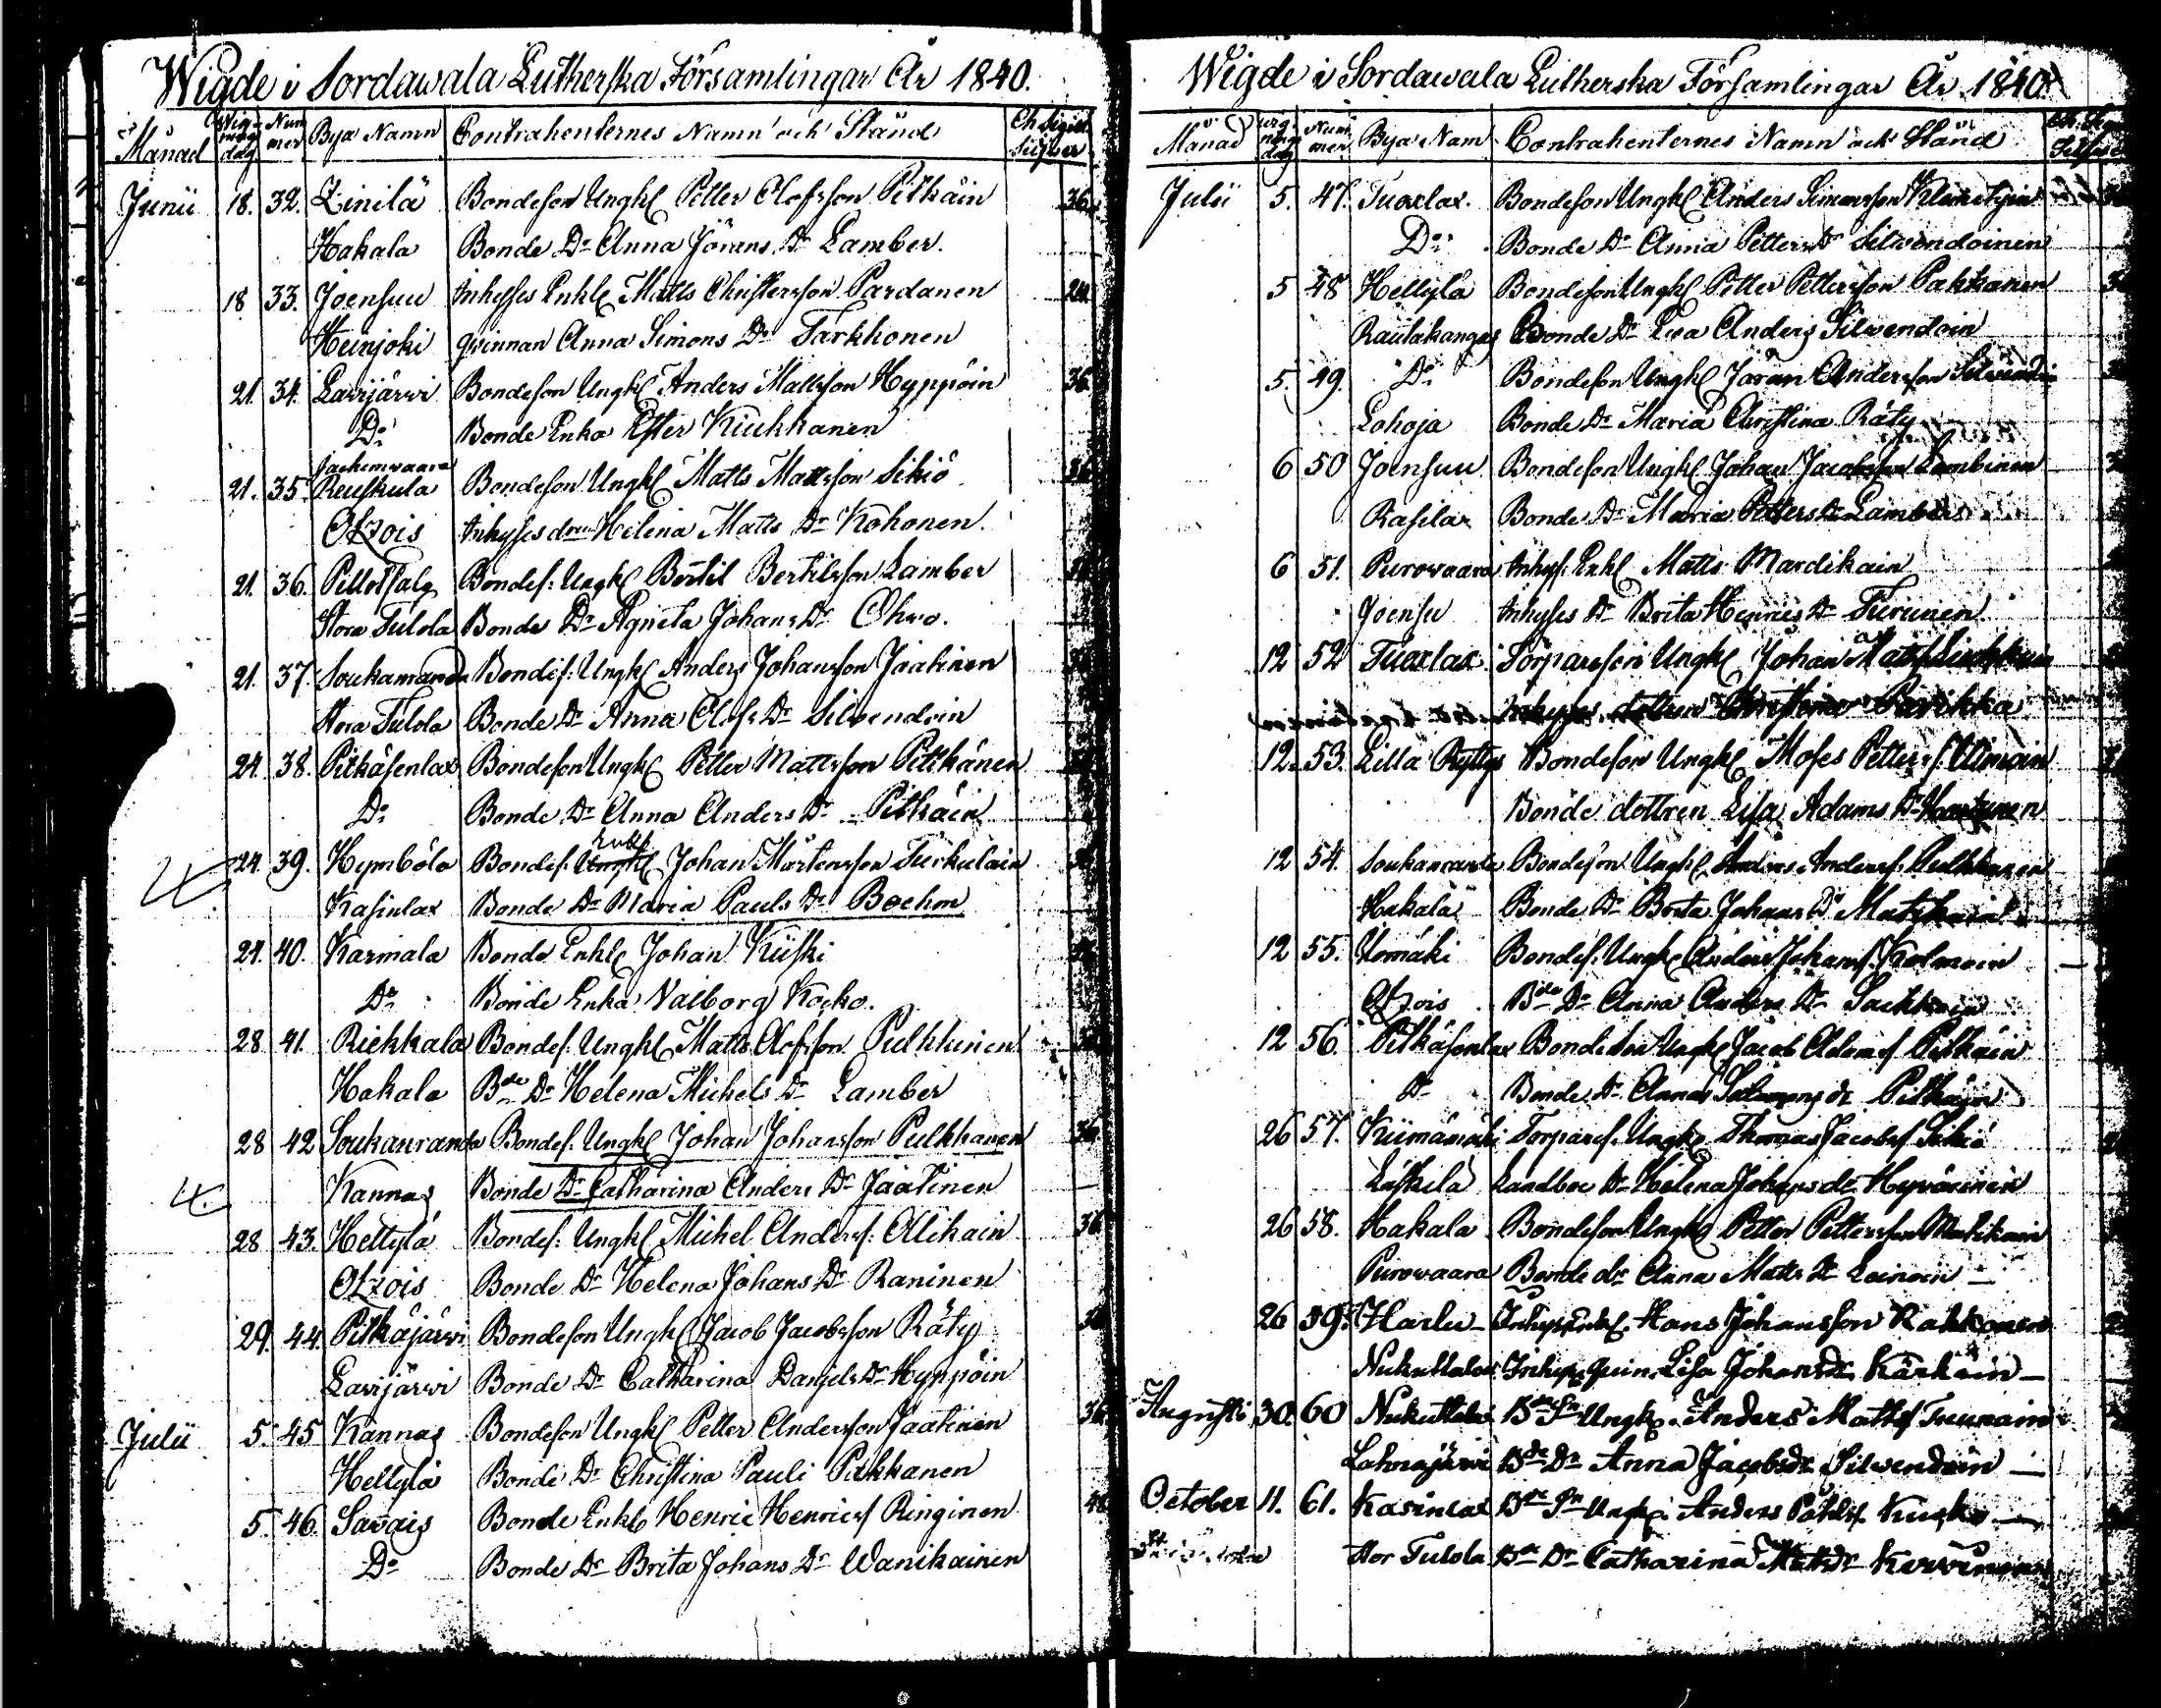 Wigde i Sordawala Lutherska Församlingar År 1840.
Månad Wignings dag Nummer Bya Namn Contrahenternes Namn och Stånd
Junii 18. 32. Zinilä Bondeson Ungkl Petter Olofsson Pitkäin 36
Hakala Bonde Dr Anna Jörans Dr Lamber.
18 33. Joensuu Inhyses Enkl Matts Christersson Pardanen 24
Heinjoki qvinnan Anna Simons Dr Tarkhonen
21. 34. Lavijärwi Bondeson Ungkl Anders Mattsson Hyppöin 36
Do Bonde Enka Ester Kiukkanen
Jachimwaara
21. 35. Reuskula Bondeson Ungkl Matts Mattsson Sikiö 36
Otzois Inhyses dren Helena Matts Dr Kohonen.
21. 36. Pellotsalg Bondes. Ungkl Bertil Bertilsson Lamber
Stora Tulola Bonde Dr Agneta Johans Dr Ohvo.
21. 37. Soukanranda Bondes. Ungkl Anders Johansson Jaatinen
Stora Tulola Bonde Dr Anna Olofs Dr Silvendoin
24. 38. Pitkäsenlax Bondeson Ungkl Petter Mattsson Pitkänen
Do Bonde Dr Anna Anders Dr Pitkäin
Enkl
24. 39. Hymbölä Bondes. Ungkl Johan Mårtensson Turkulain
Kasinlax Bonde Dr Maria Pauls Dr Boehm
24. 40. Karmala Bonde Enkl Johan Kiiski
Do Bonde Enka Valborg Kocko.
28 41. Riekkala Bondes. Ungkl Matts Olofsson Pulkkinen
Hakala Bde Dr Helena Michels Dr Lamber
28 42 Soukanranda Bondes. Ungkl Johan Johansson Pulkkanen 36
Kannas Bonde Dr Catharina Anders Dr Jaatinen
28 43. Hellylä Bondes. Ungkl Michel Anderss. Olikain 36
Otzois Bonde Dr Helena Johans Dr Raninen
29. 44. Pitkäjärwi Bondeson Ungkl Jacob Jacobsson Räty 36
Lavijärwi Bonde Dr Catharina Daniels Dr Hyppöin
Julii 5. 45 Kannas Bondeson Ungkl Petter Andersson Jaatinen 36
Hellylä Bonde Dr Christina Pauli Pakkanen
5. 46. Savais Bonde Enkl Henric Henricss Ringinen 48
Do Bonde Dr Brita Johans Dr Wanikainen
Wigde i Sordawala Lutherska Församlingar År 1840.
Månad Nummer Bya Nam Contrahenternes Namn och Stånd
Julii 5. 47. Tuoxlax. Bondeson Ungkl Anders Simonsson Klimetyin
Do Bonde Dr Anna Petters Dr Silvendoinen
5 48 Hellylä Bondeson Ungkl Petter Pettersson Pakkanen
Rautakangas Bonde Dr Eva Anders Silvendoin
5. 49. Do Bondeson Ungkl Jöran Andersson
Lohoja Bonde Dr Maria Christina Räty
6 50 Joensuu Bondeson Ungkl Johan Jacobsson Lambinen
Rasilax Bonde Dr Maria Petters Dr Lamber
6 51. Purowaara Inhys. Enkl Matts Mardikain
Joensu Inhyses Dr Brita Henrics Dr Turunen
12 52 Tuoxlax Torparesson Ungkl Johan Matss
Inhyses dottren Christina Parikka
12. 53. Lilla Ryttys Bondeson Ungkl Moses Petters.
Bonde dottren Lisa Adams Dr
12 54. Soukanranda Bondeson Ungkl Anders Anderss. Pulkkanen
Hakala Bonde Dr Brita Johans Dr
12 55. Bondes. Ungkl Anders Johanss. Kolmoin
Otzois Bde Dr Anna Anders Dr
12 56. Pitkäsenlax Bondeson Ungkl Jacob Adamss Pitkäin
Dr Bonde Dr Anna Salomons dr Pitkäin
26 57. Kiimämäki Torpares. Ungkl Thomas Jacobss Sikiö
Läskelä Landboe Dr Helena Johans dr Hyvärinen
26 58. Hakala Bondeson Ungkl Petter Pettersson
Purowaara Bonde dr Anna Matts Dr Loinoin
26 59. Harlu Inhyses Enkl. Hans Johansson Kakkonen
Nukuttalax Inhyses quin. Lisa Johansdr Kärkäin
Augusti 30. 60 Nukuttalax Bde Sn Ungk. Anders Mattss Tuunain
Lahnajärwi Bde Dr Anna Jacobsdr Silvendoin
October 11. 61. Kasinlax Bde Sn Ungk. Anders Påhlss.
Stor Tulola Bde Dr Catharina Kervinen